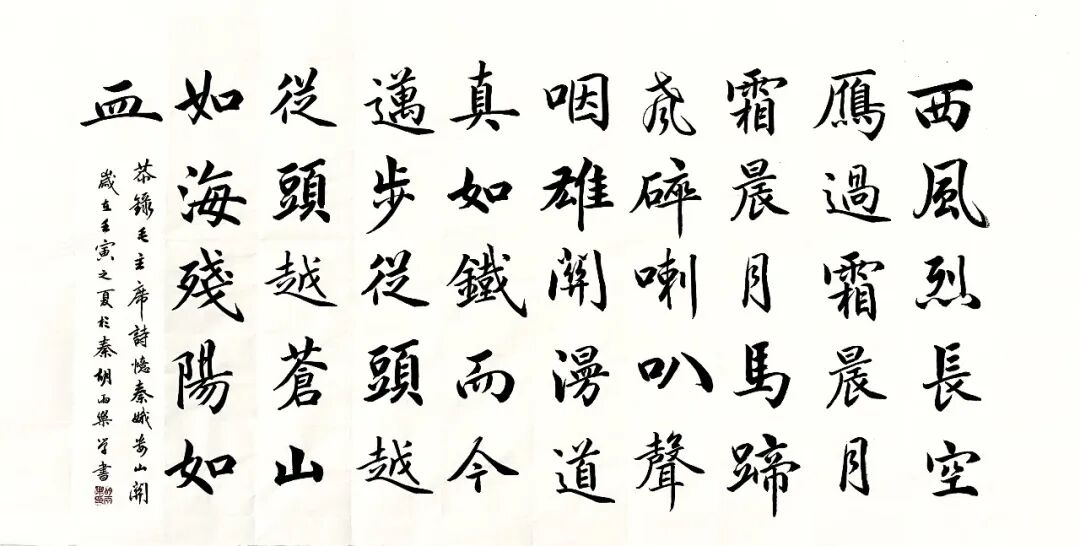 西風烈長空
鴈過霜晨月
霜晨月馬蹄
碎喇叭聲
咽雄關漫道
真如鐵而今
邁步從頭越
從頭越蒼山
如海殘陽如
血
恭錄毛主席詩憶秦娥婁山關
歲在壬寅之夏於秦胡雨樂書